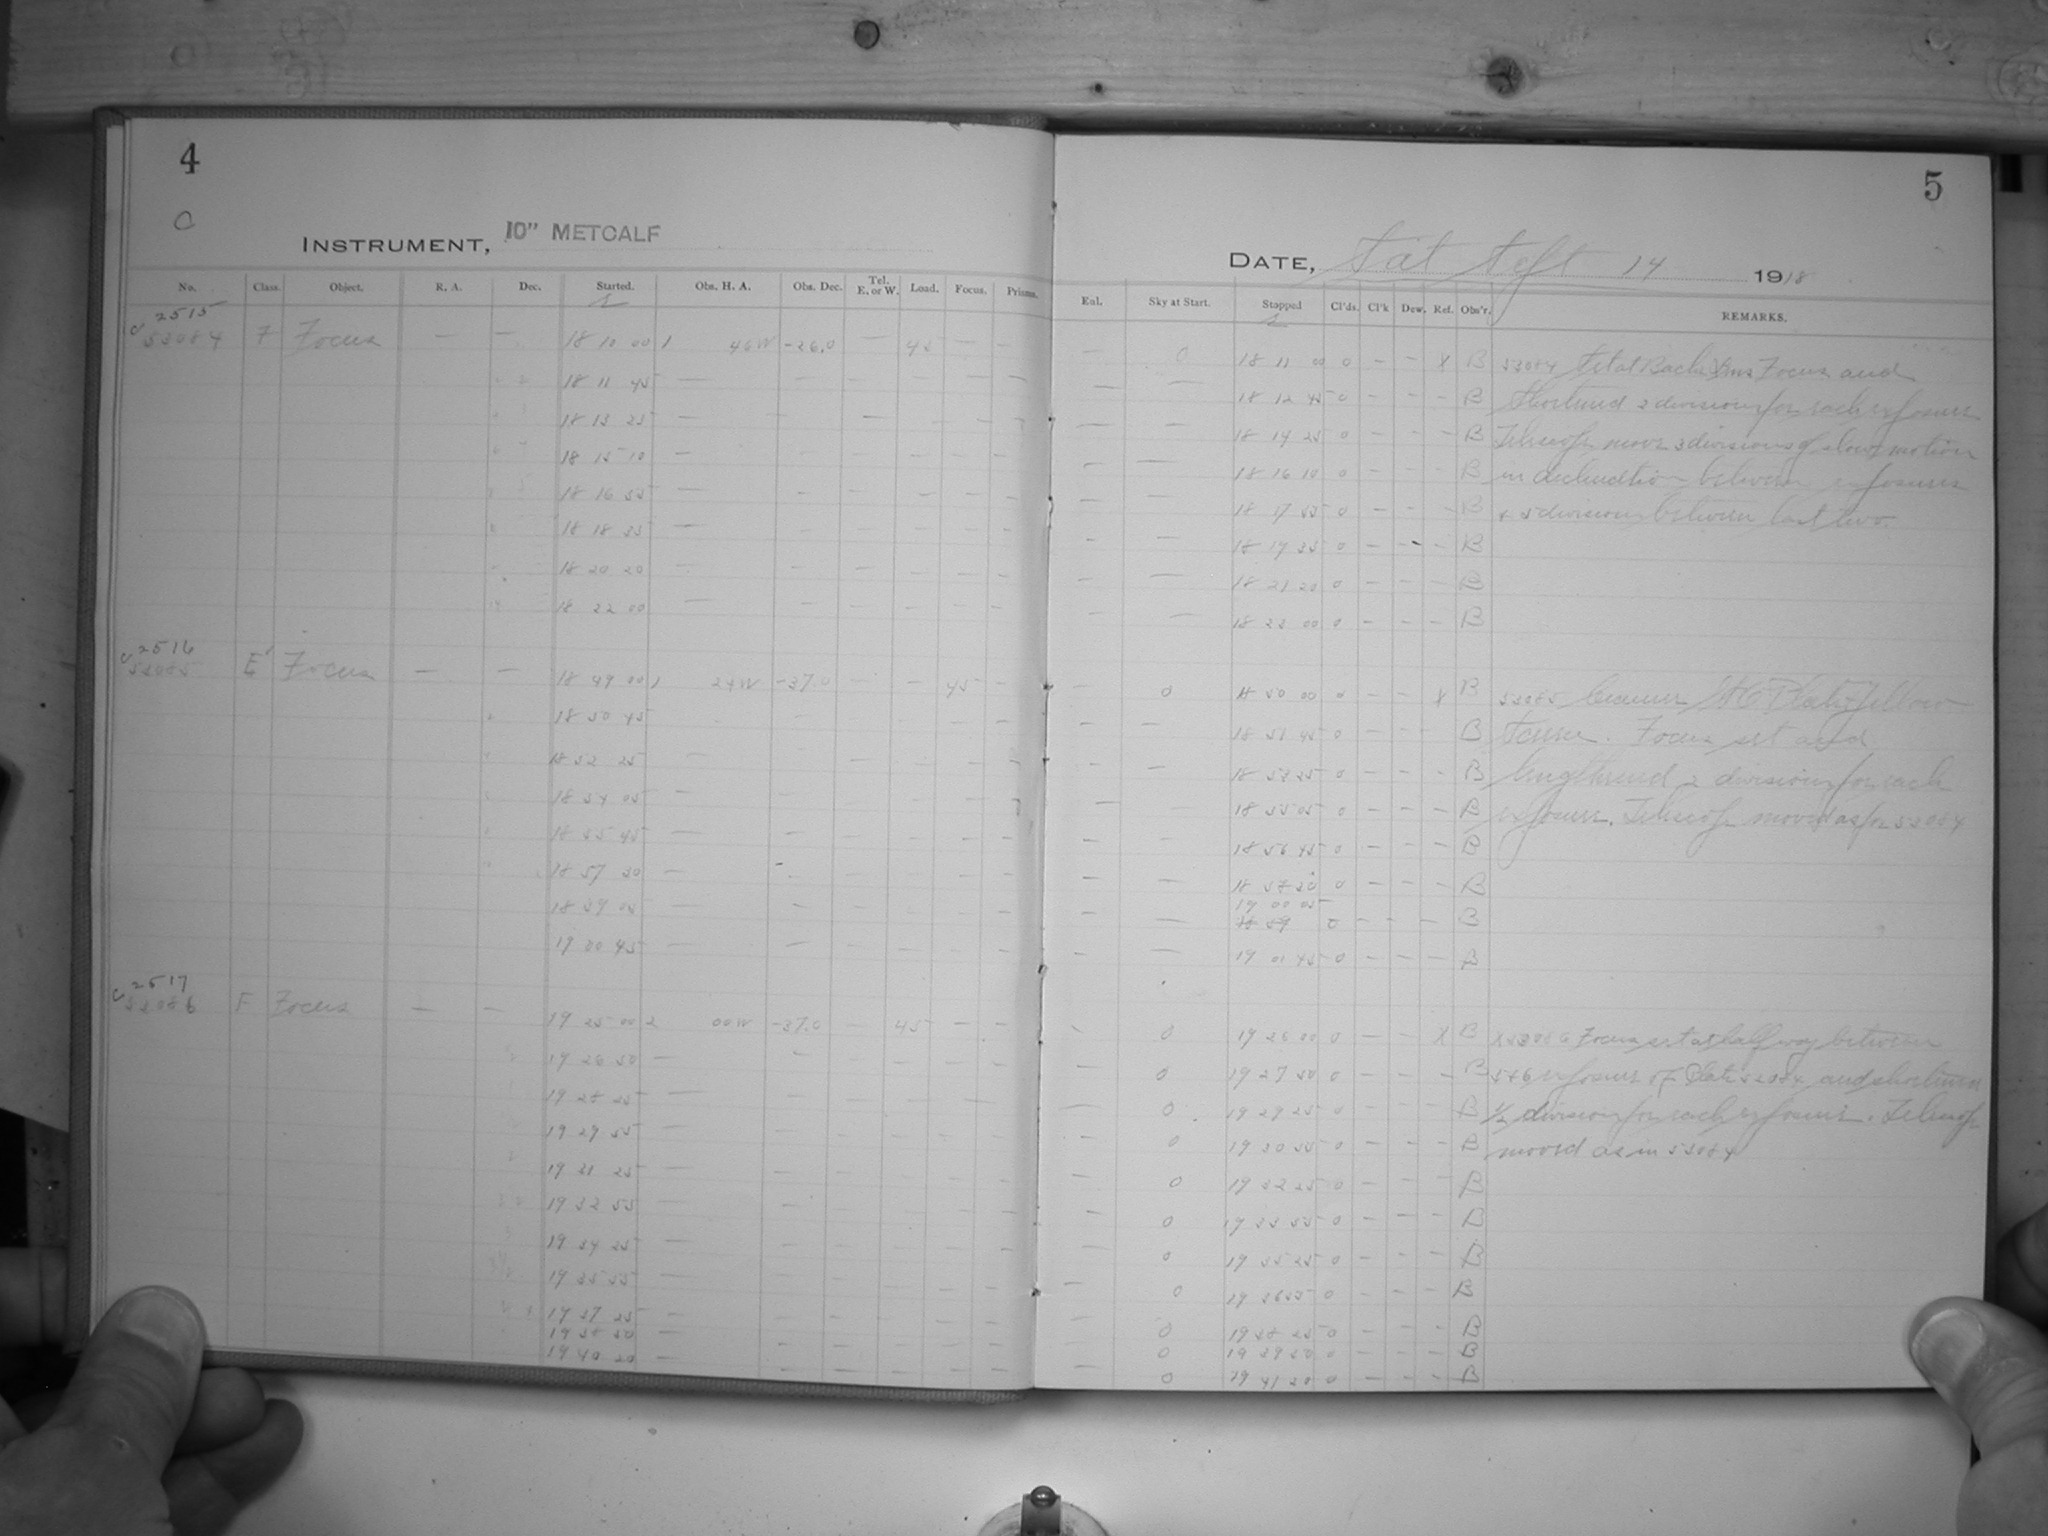 4
C
INSTRUMENT, 10" METCALF
No. Class. Object. R. A. Dec. Started. Obs. H. A. Obs. Dec. Tel. E. or W. Load. Focus. Prisms.
C 2515
53084 F Focus — — 18 10 00 1 46W -26.0 — 45 — —
18 11 45
18 13 25
18 15 10
18 16 55
18 18 35
18 20 20
18 22 00
C 2516
53085 E' Focus — — 18 49 00 1 24W -37.0 — — 45 —
18 50 45
18 52 25
18 54 05
18 55 45
18 57 30
18 59 05
19 00 45
C 2517
53086 F Focus — — 19 25 00 2 00W -37.0 — 45 — —
19 26 50
19 28 25
19 29 55
19 31 25
19 32 55
19 34 25
19 35 55
19 37 25
19 38 50
19 40 20
5
DATE, Sat Sept 14 1918
Exl. Sky at Start. Stopped Cl'ds. Cl'k Dew. Ref. Obs'r. REMARKS.
— 0 18 11 00 0 — — X B 53084 Focus and
18 12 45 0 — — — B Shortened 2 divisions for each exposure
18 14 25 0 — — — B Telescope move 3 divisions of slow motion
18 16 10 0 — — — B in declination between exposures
18 17 55 0 — — — B + 5 divisions between last two.
18 19 35 0 — — — B
18 21 20 0 — — — B
18 23 00 0 — — — B
— 0 18 50 00 0 — — X B 53085 Cramer Plate Yellow
18 51 45 0 — — — B Screen. Focus set and
18 53 25 0 — — — B lengthened 2 divisions for each
18 55 05 0 — — — B exposure. Telescope moved as for 53084
18 56 45 0 — — — B
18 58 30 0 — — — B
19 00 05
18 59 0 — — — B
19 01 45 0 — — — B
0 19 26 00 0 — — X B X 53086 Focus set at half way between
0 19 27 50 0 — — — B 5+6 exposure of Plate 53084 and shortened
0 19 29 25 0 — — — B 1/2 division for each exposure. Telescope
0 19 30 55 0 — — — B moved as in 53084
0 19 32 25 0 — — — B
0 19 33 55 0 — — — B
0 19 35 25 0 — — — B
0 19 36 55 0 — — — B
0 19 38 25 0 — — — B
0 19 39 50 0 — — — B
0 19 41 20 0 — — — B